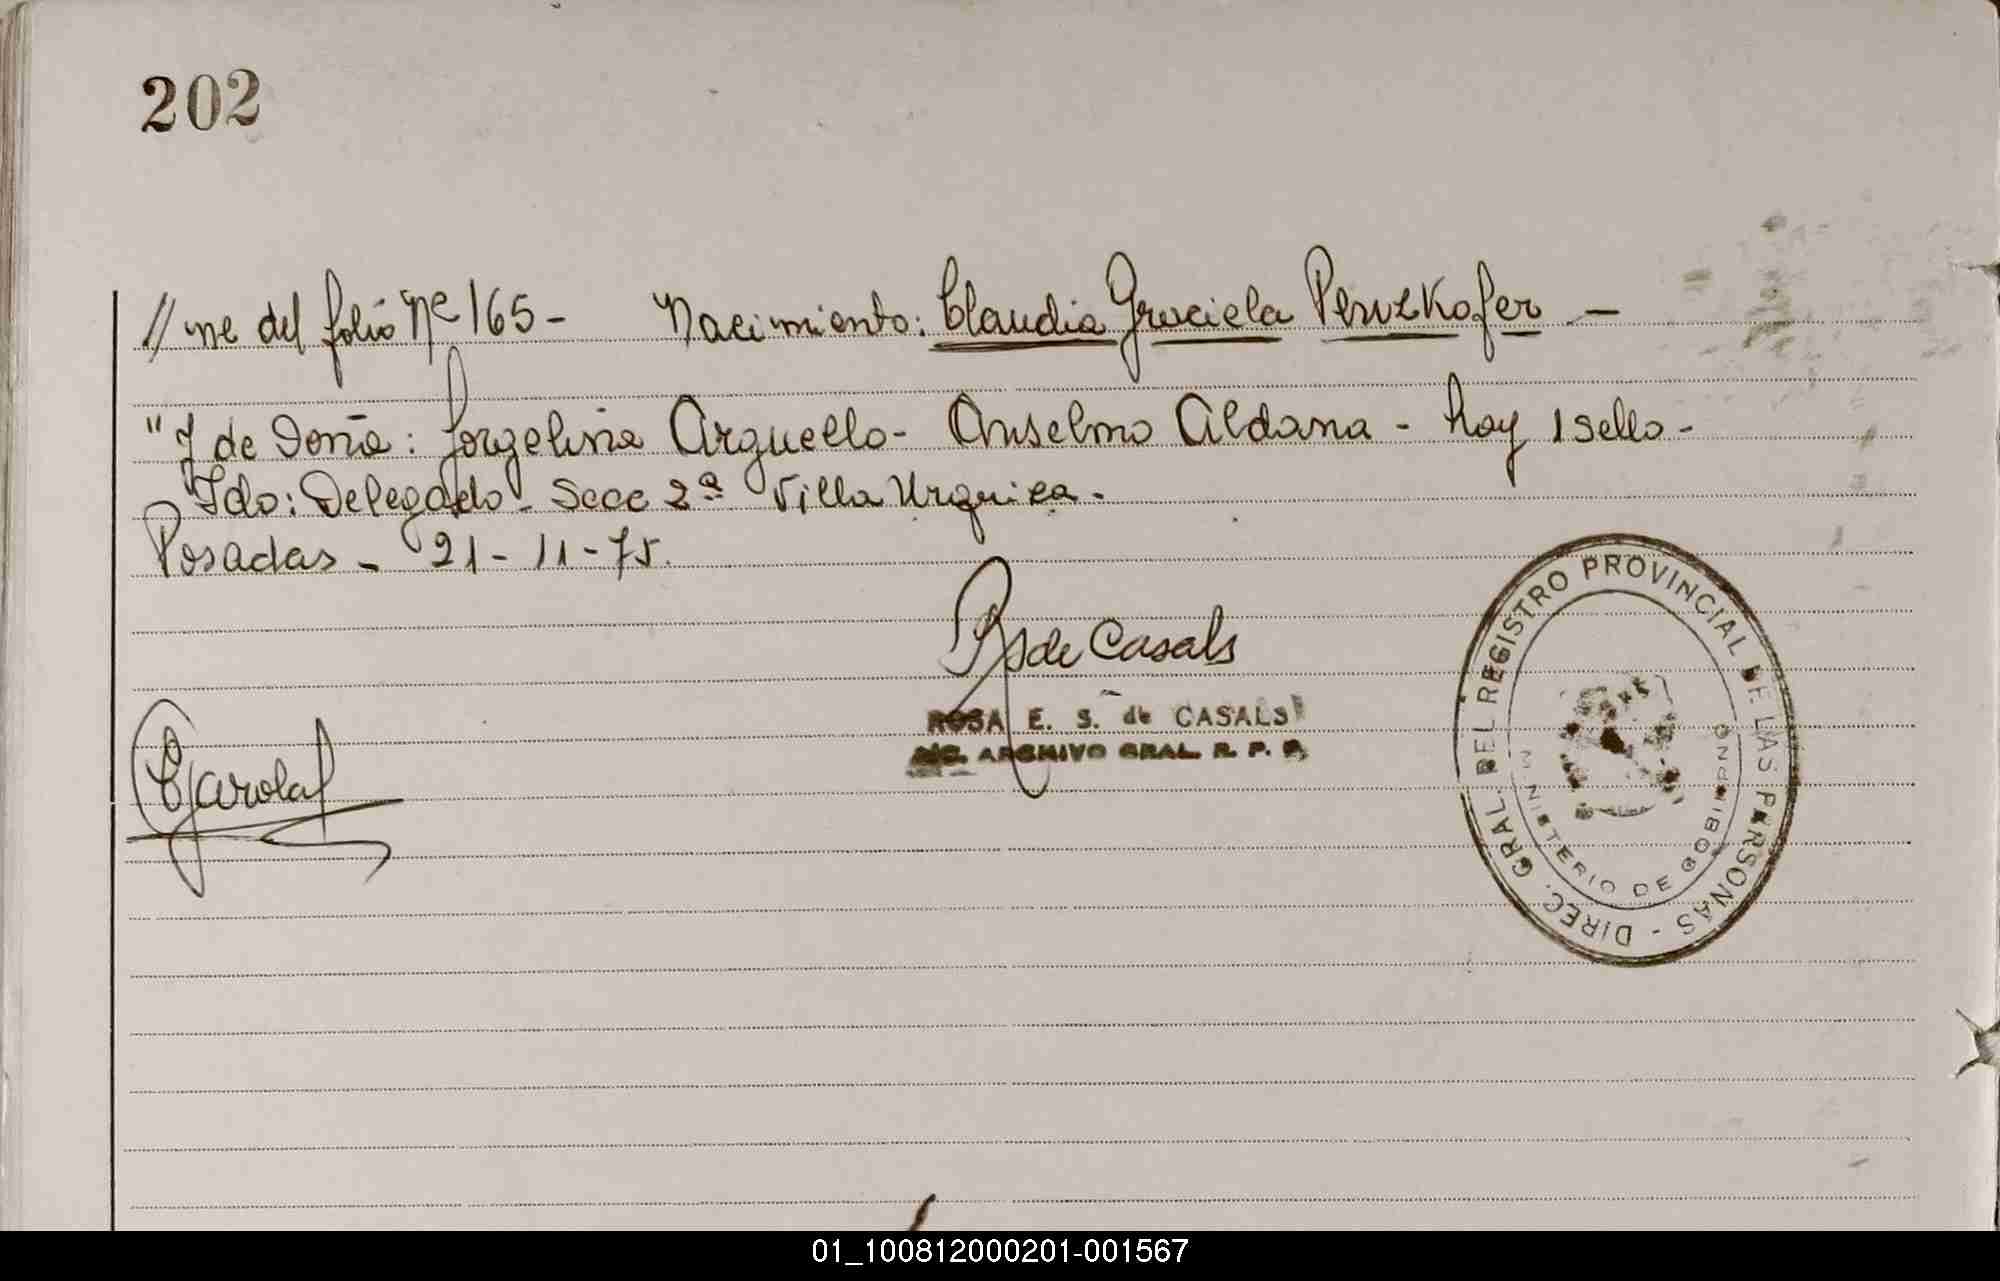 202
// ne del folio Nº 165 - Nacimiento: Claudia Graciela Penzkofer -
"Y de Doña: Jorgelina Arguello - Anselmo Aldana - hay 1 sello -
Fdo: Delegado - Secc 2ª Villa Urquiza.
Posadas - 21-11-75.
RS de Casals
ROSA E. S. de CASALS
ARCHIVO GRAL. R. P. P.
DIREC. GRAL. DEL REGISTRO PROVINCIAL DE LAS PERSONAS -
MINISTERIO DE GOBIERNO
01_100812000201-001567